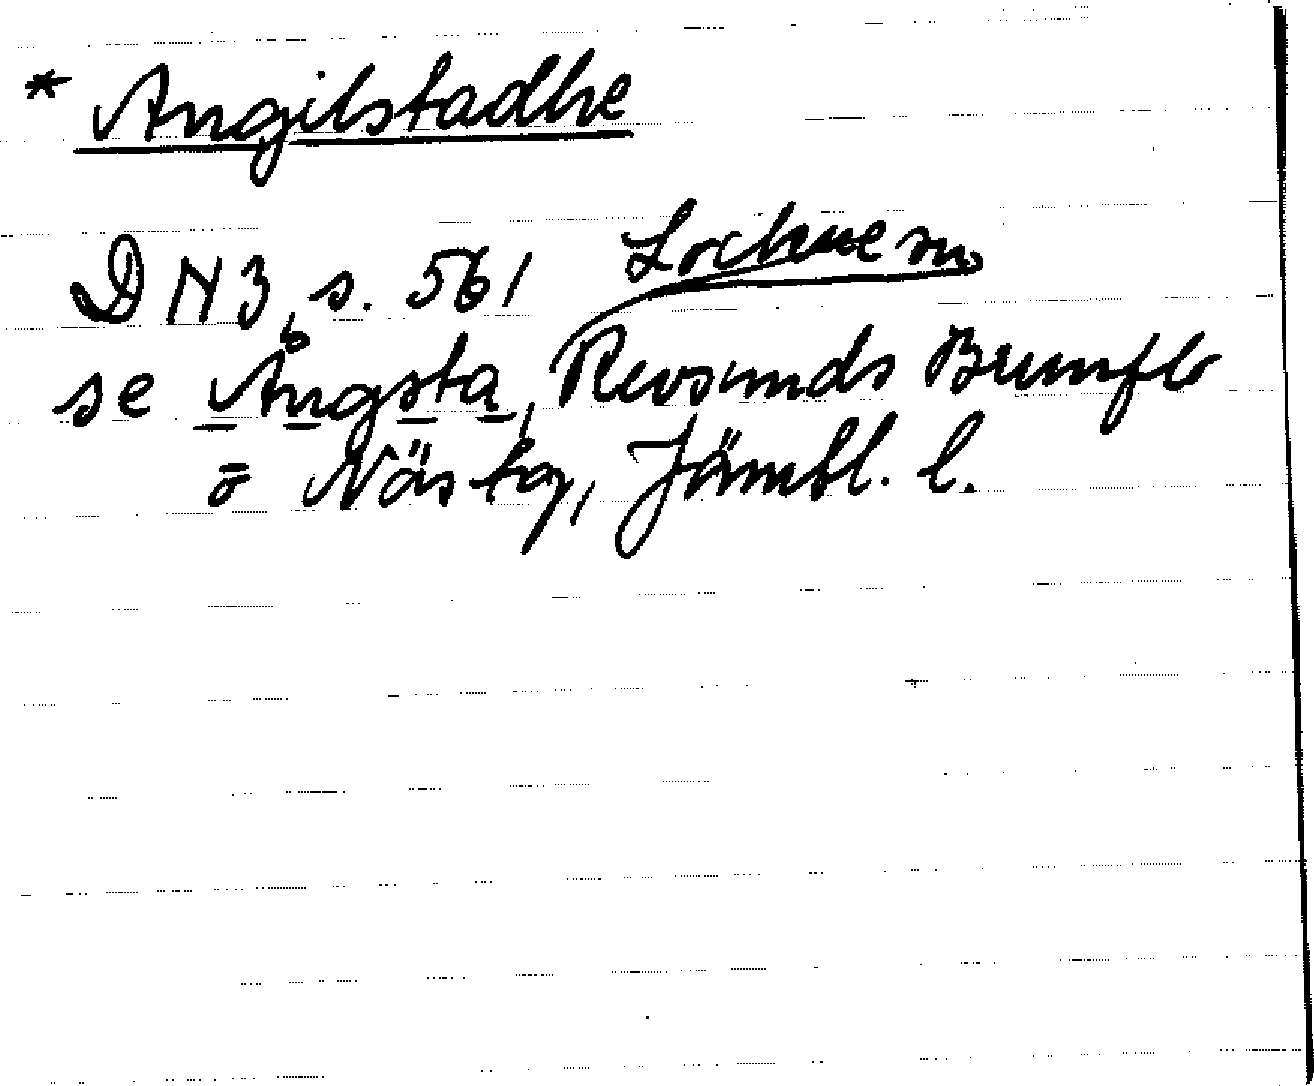 * Angilstadhe
DN 3, s. 561 Lockne sn
se Ångsta, Revsunds Brunflo
o Näs tg, Jämtl. l.